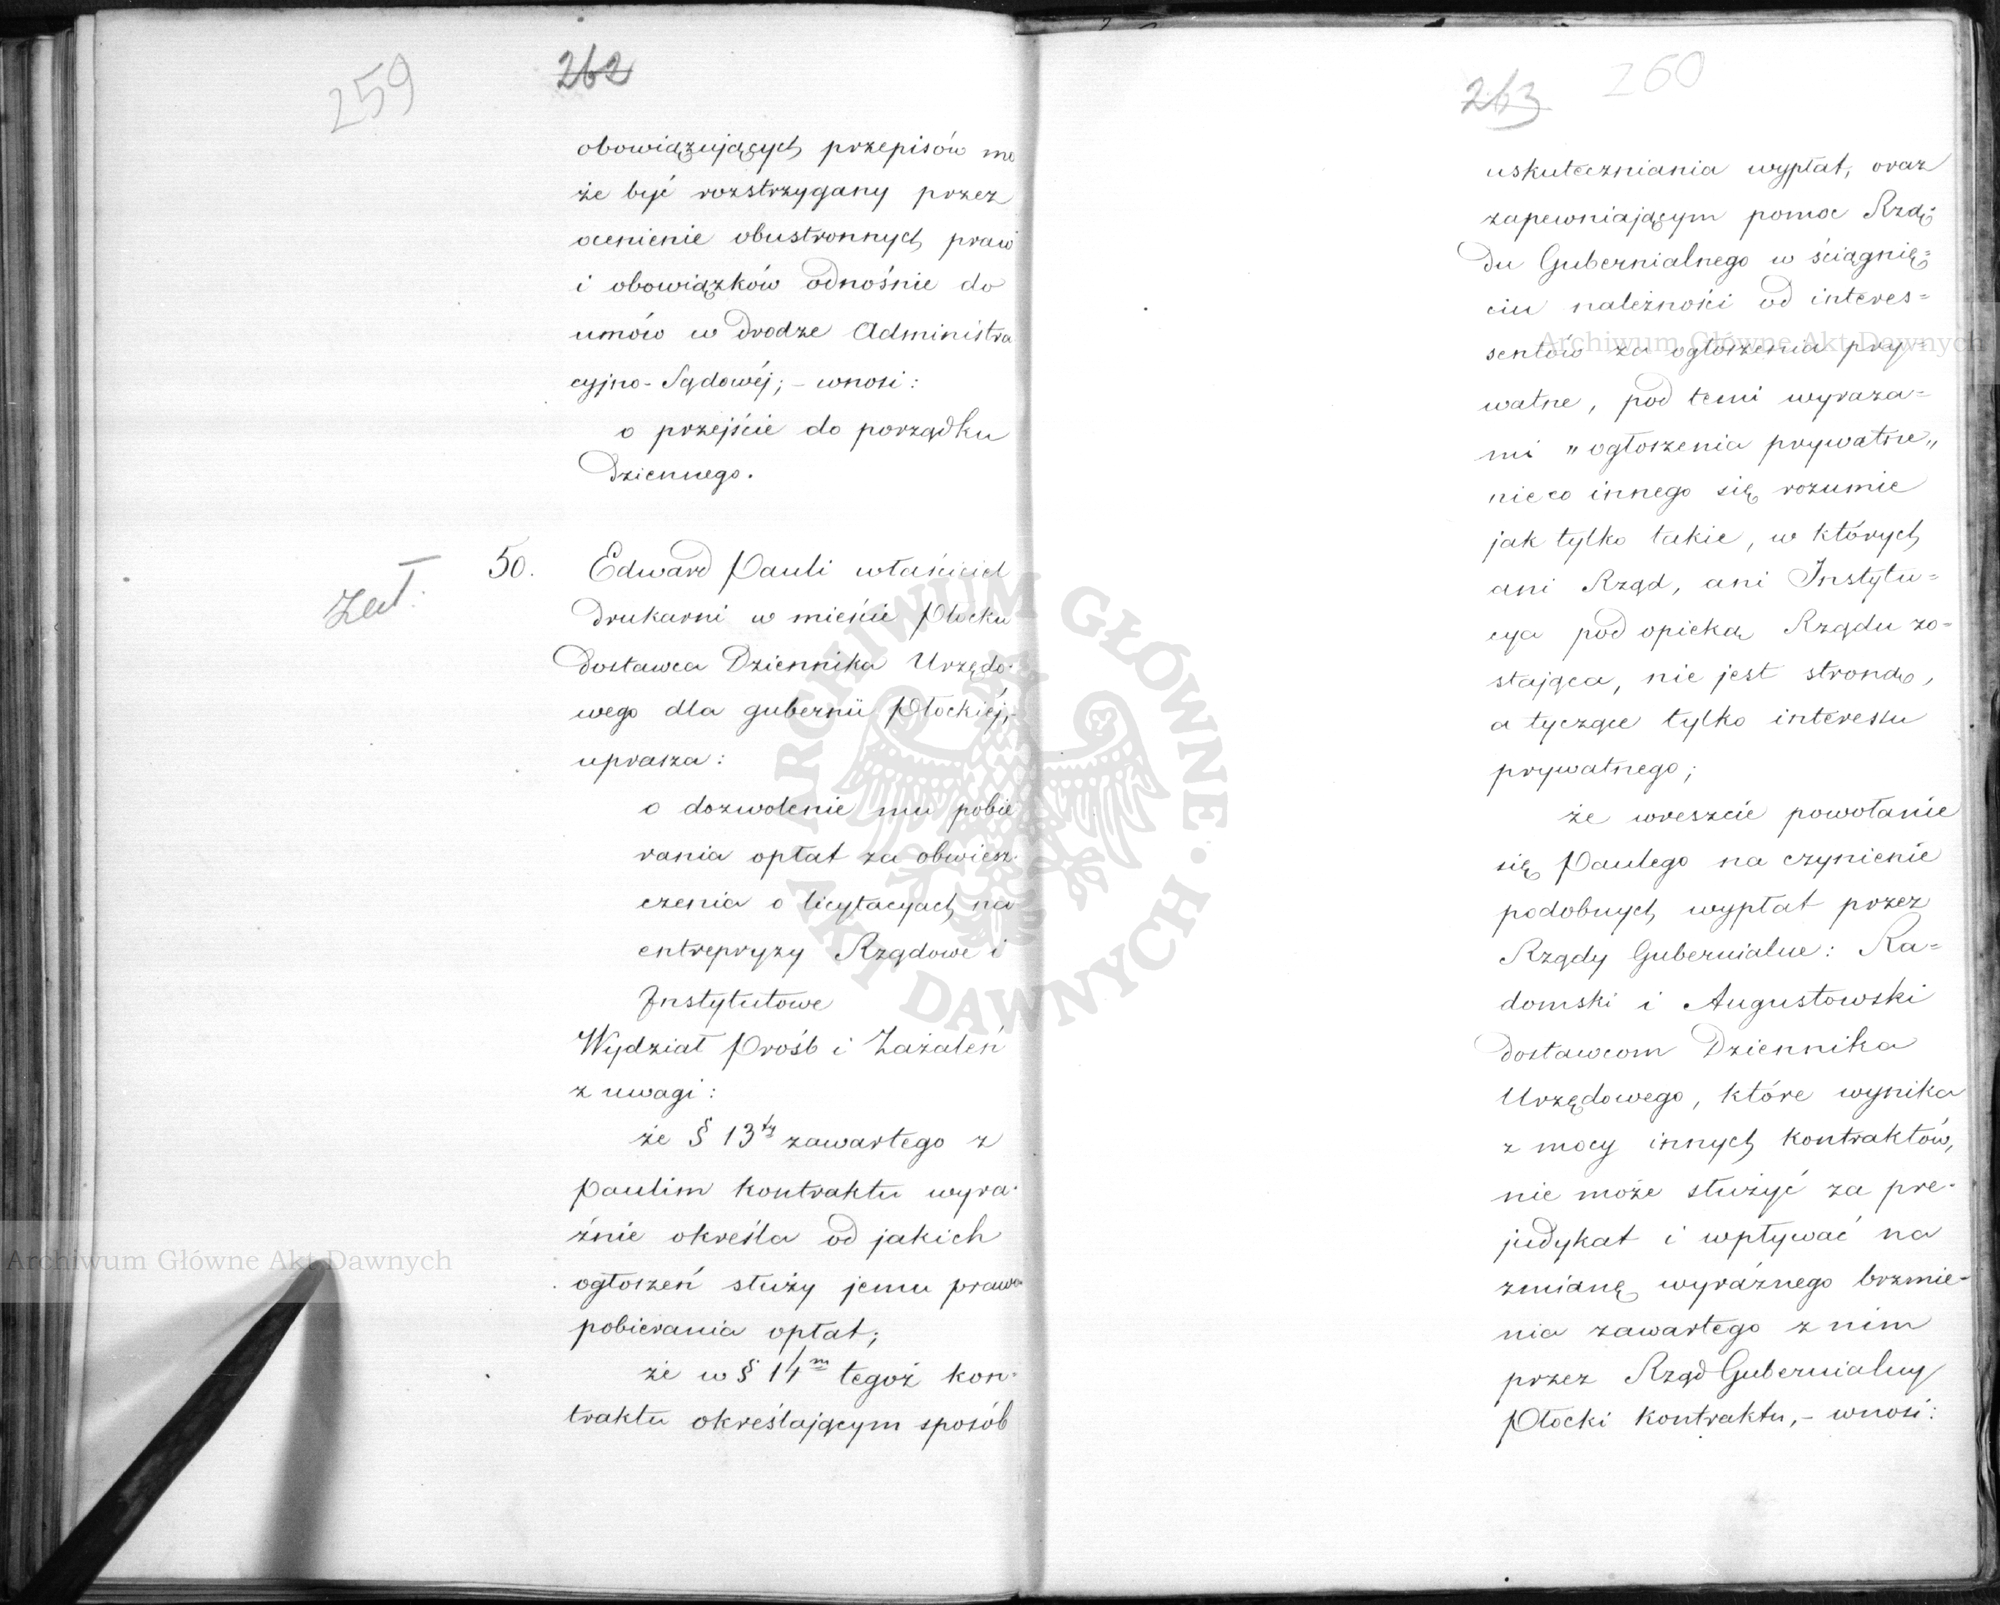 259
262
obowiązujących przepisów mo
że być rozstrzygany przez
ocenienie obustronnych praw
i obowiązków odnośnie do
umów w drodze Administra
cyjno-Sądowéj; – wnosi:
o przejście do porządku
dziennego.
zał.
50. Edward Pauli właściciel
drukarni w mieście Płocku
dostawca Dziennika Urzędo-
wego dla gubernii Płockiéj,-
uprasza:
o dozwolenie mu pobie
rania opłat za obwiesz-
czenia o licytacyach na
entrepryzy Rządowe i
Instytutowe
Wydział Próśb i Zażaleń
z uwagi:
że § 13ty zawartego z
Paulim kontraktu wyra-
źnie określa od jakich
ogłoszeń służy jemu prawo
pobierania opłat;
że w § 14m tegoż kon-
traktu określającym sposób
263
260
uskuteczniania wypłat, oraz
zapewniającym pomoc Rzą-
du Gubernialnego w ściągnię=
ciu należności od interes=
sentów za ogłoszenia pry-
watne, pod temi wyraza=
mi „ogłoszenia prywatne„
nic co innego się rozumie
jak tylko takie, w których
ani Rząd, ani Instytu=
cya pod opieką Rządu zo-
stająca, nie jest stroną,
a tyczące tylko interesu
prywatnego;
że wreszcie powołanie
się Paulego na czynienie
podobnych wypłat przez
Rządy Gubernialne: Ra=
domski i Augustowski
dostawcom Dziennika
Urzędowego, które wynika
z mocy innych kontraktów,
nie może służyć za pre-
judykat i wpływać na
zmianę wyraźnego brzmie-
nia zawartego z nim
przez Rząd Gubernialny
Płocki kontraktu,- wnosi:
Archiwum Główne Akt Dawnych
Archiwum Główne Akt Dawnych
ARCHIWUM GŁÓWNE • AKT DAWNYCH •